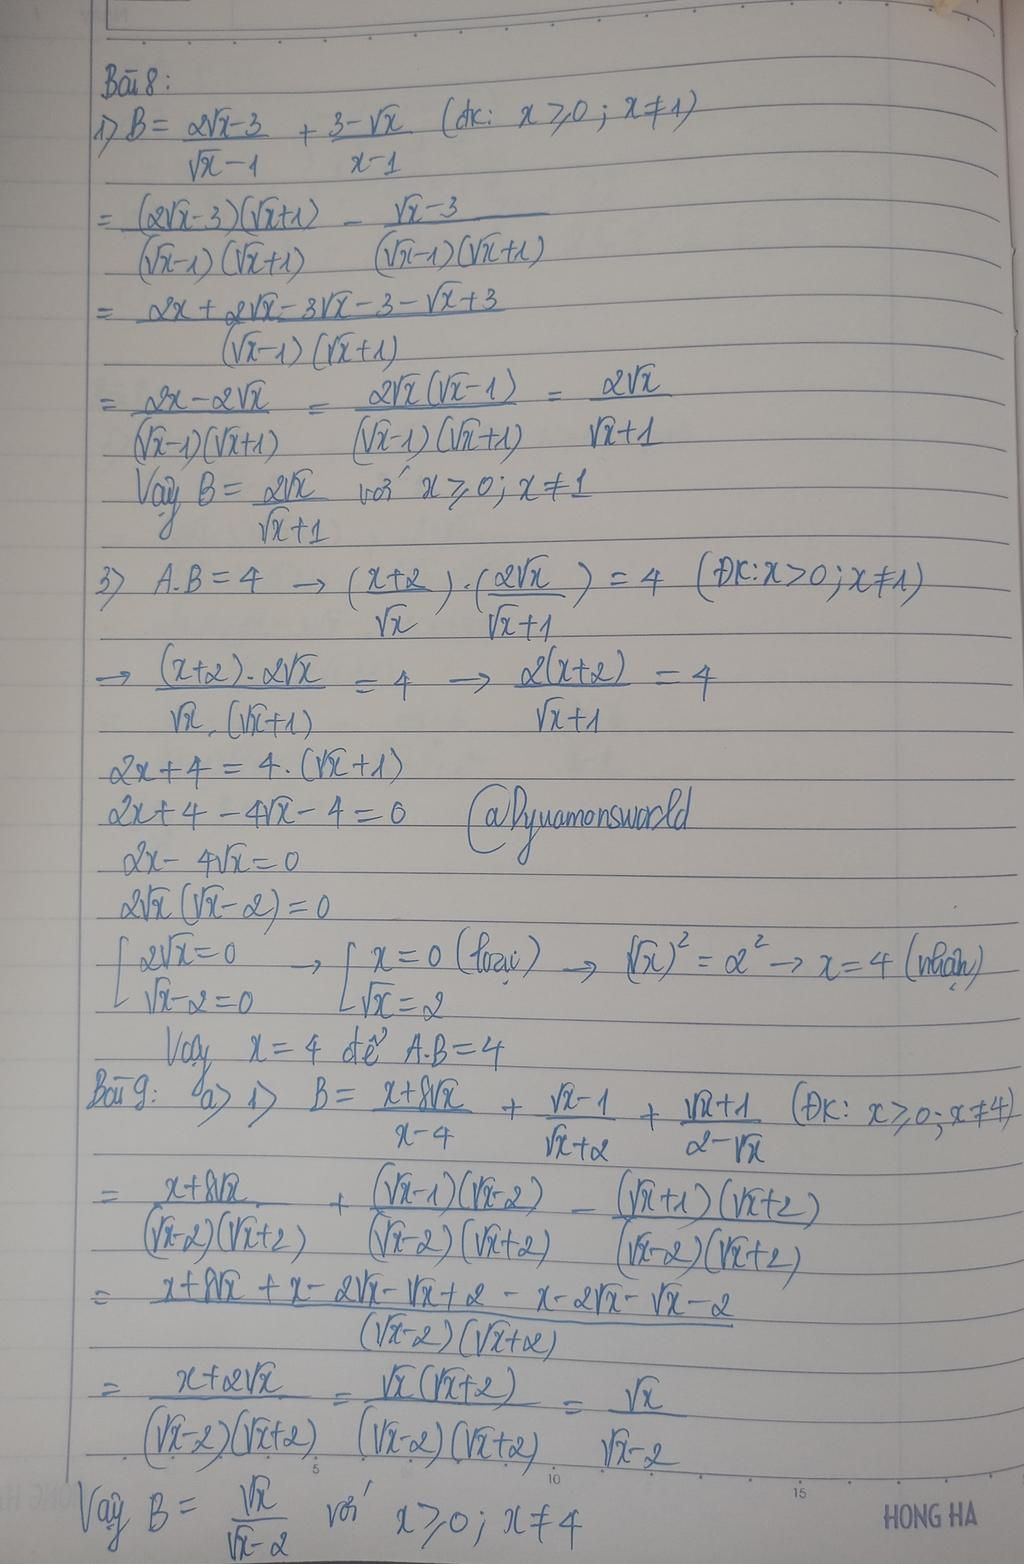 Bài 8:
1) B = (2√x-3)/(√x-1) + (3-√x)/(x-1) (đk: x ≥ 0; x ≠ 1)
= ((2√x-3)(√x+1))/((√x-1)(√x+1)) - (√x-3)/((√x-1)(√x+1))
= (2x + 2√x - 3√x - 3 - √x + 3)/((√x-1)(√x+1))
= (2x - 2√x)/((√x-1)(√x+1)) = (2√x(√x-1))/((√x-1)(√x+1)) = (2√x)/(√x+1)
Vậy B = (2√x)/(√x+1) với x ≥ 0; x ≠ 1
3) A.B = 4 → ((x+2)/√x) . ((2√x)/(√x+1)) = 4 (ĐK: x > 0; x ≠ 1)
→ ((x+2).2√x)/(√x.(√x+1)) = 4 → (2(x+2))/(√x+1) = 4
2x + 4 = 4.(√x+1)
2x + 4 - 4√x - 4 = 0 @Dyuamonsworld
2x - 4√x = 0
2√x(√x-2) = 0
[ 2√x = 0 → [ x = 0 (loại) → (√x)² = 2² → x = 4 (nhận)
√x - 2 = 0 √x = 2
Vậy x = 4 để A.B = 4
Bài 9: a) 1) B = (x+8√x)/(x-4) + (√x-1)/(√x+2) + (√x+1)/(2-√x) (ĐK: x ≥ 0; x ≠ 4)
= (x+8√x)/((√x-2)(√x+2)) + ((√x-1)(√x-2))/((√x-2)(√x+2)) - ((√x+1)(√x+2))/((√x-2)(√x+2))
= (x+8√x + x - 2√x - √x + 2 - x - 2√x - √x - 2)/((√x-2)(√x+2))
= (x+2√x)/((√x-2)(√x+2)) = (√x(√x+2))/((√x-2)(√x+2)) = √x/(√x-2)
5 10 15
Vậy B = √x/(√x-2) với x ≥ 0; x ≠ 4
HONG HA